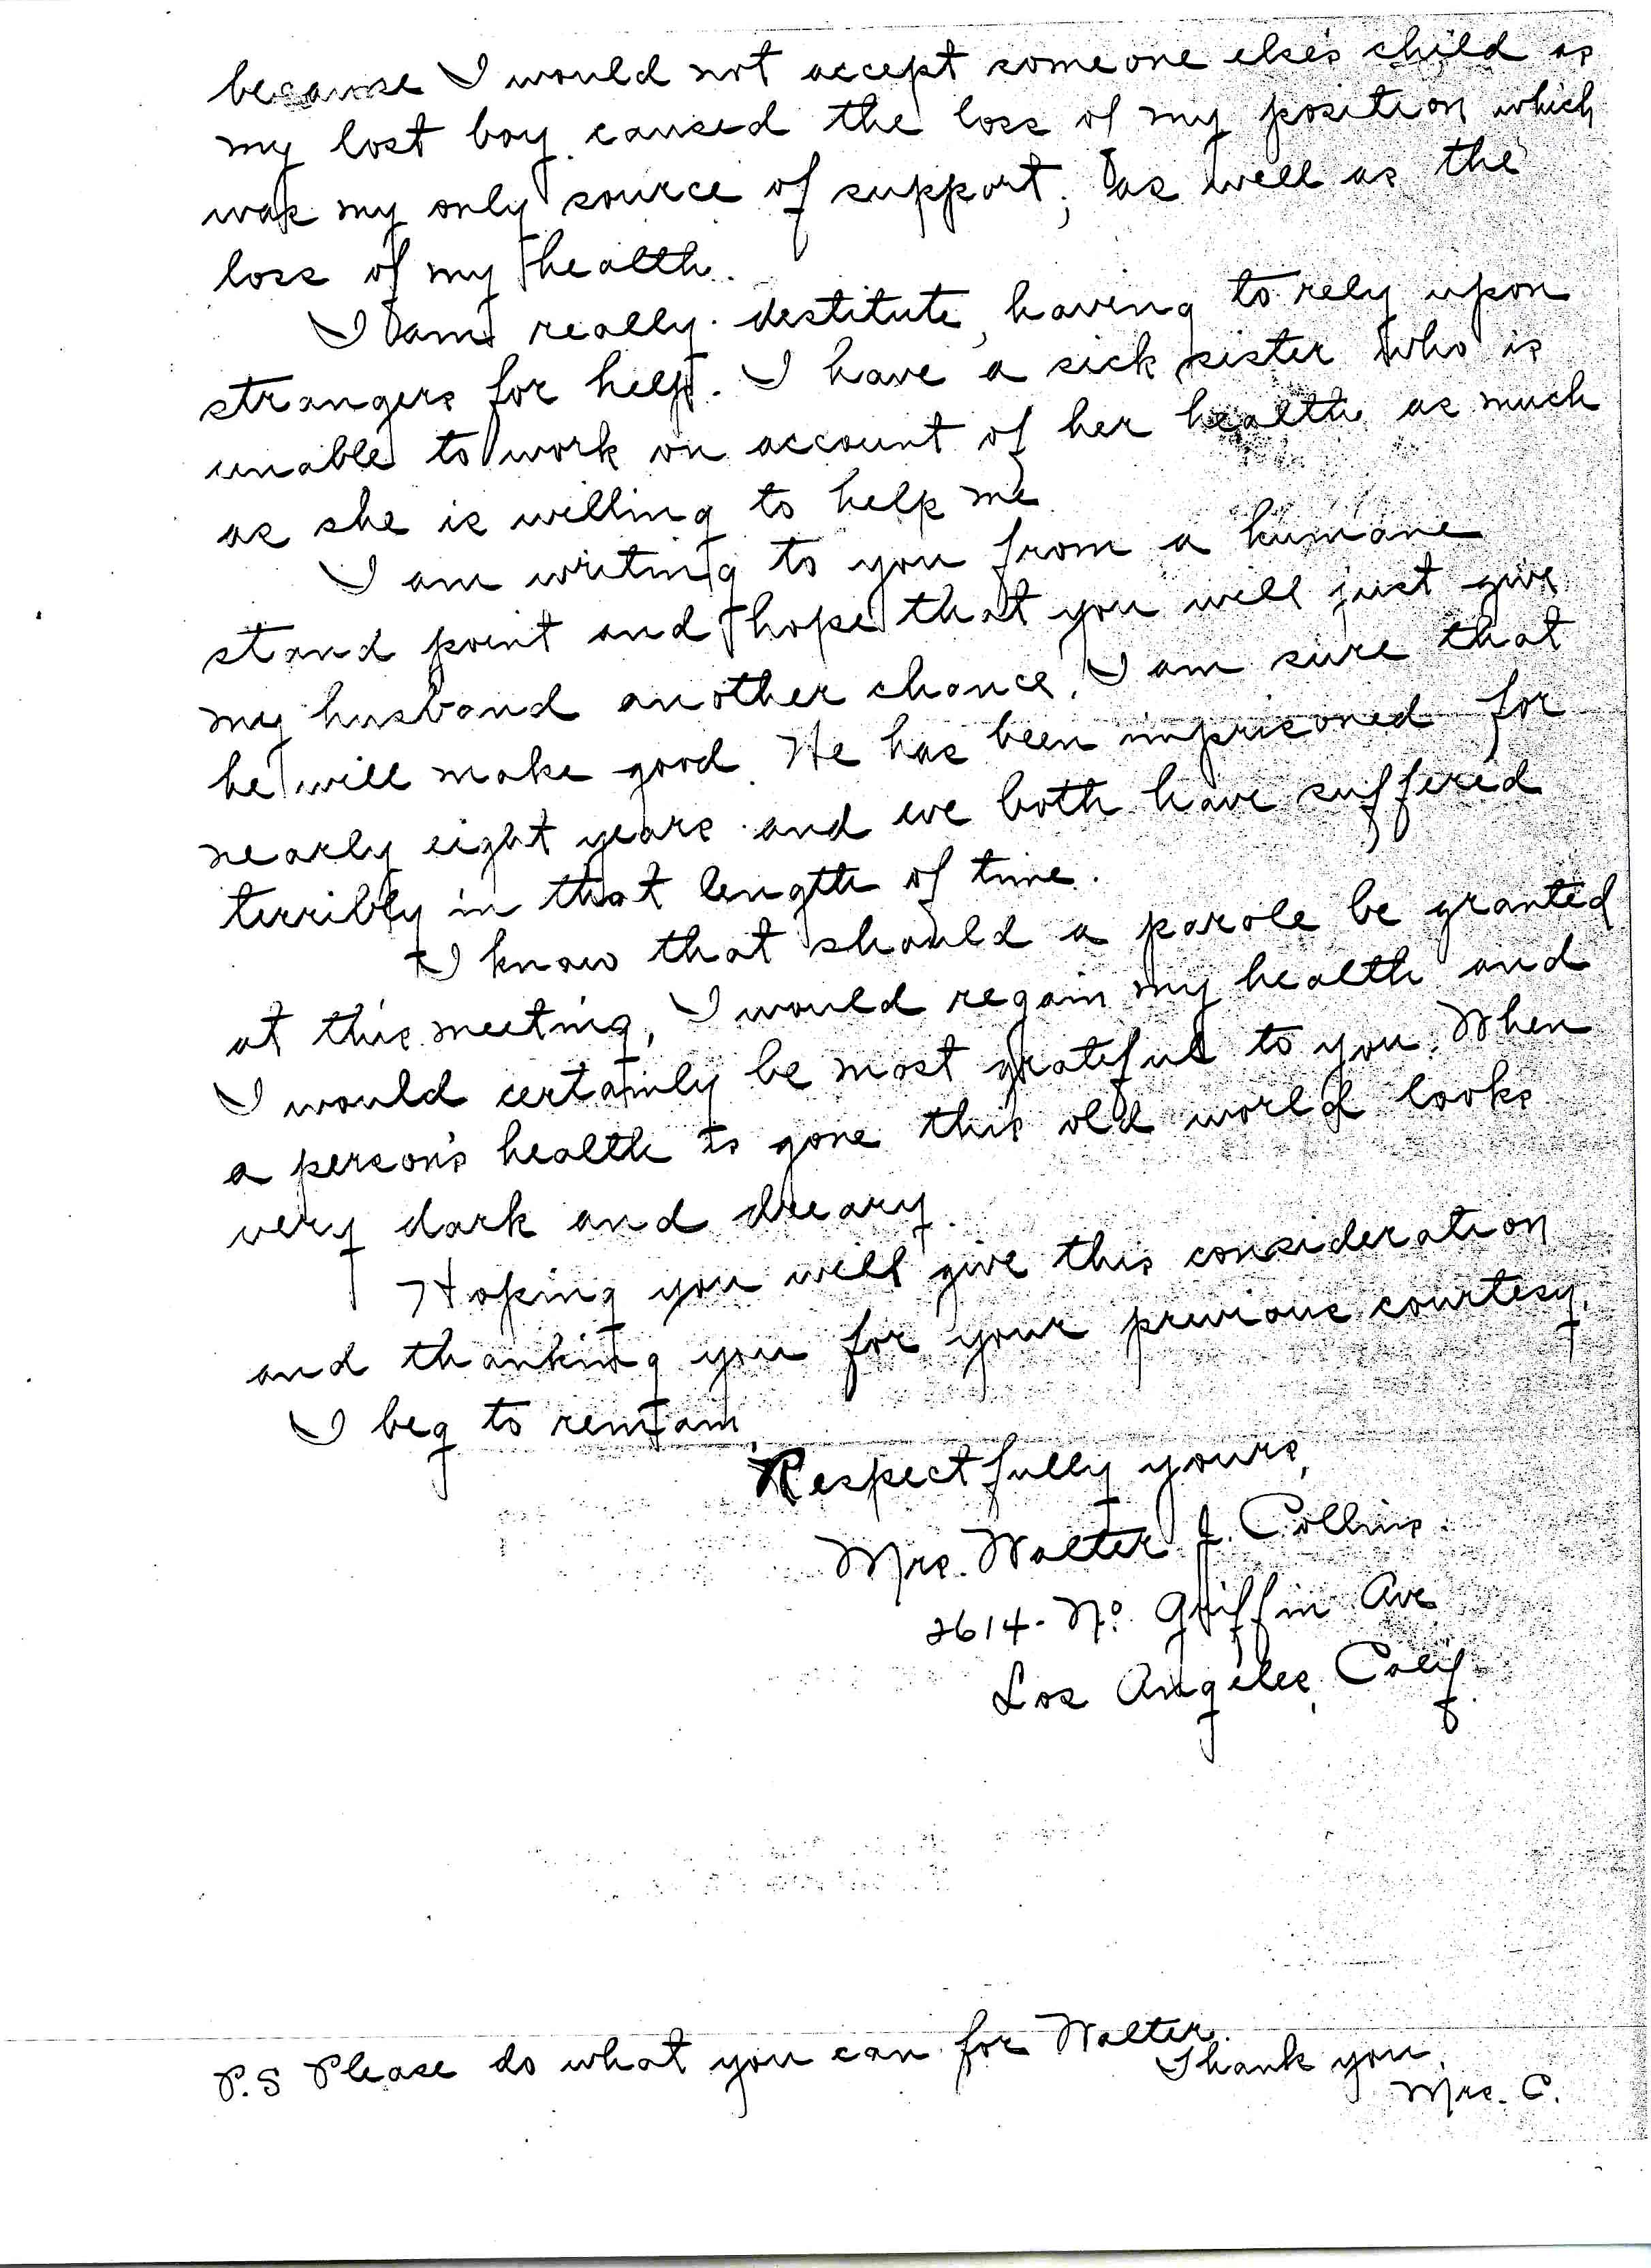 because I would not accept someone else's child as
my lost boy caused the loss of my position which
was my only source of support, as well as the
loss of my health.
I am really destitute, having to rely upon
strangers for help. I have a sick sister who is
unable to work on account of her health as much
as she is willing to help me.
I am writing to you from a humane
stand point and hope that you will just give
my husband another chance. I am sure that
he will make good. He has been imprisoned for
nearly eight years and we both have suffered
terribly in that length of time.
I know that should a parole be granted
at this meeting, I would regain my health and
I would certainly be most grateful to you. When
a person's health is gone this old world looks
very dark and dreary.
Hoping you will give this consideration
and thanking you for your previous courtesy,
I beg to remain,
Respectfully yours,
Mrs. Walter J. Collins.
2614 - No. Griffin Ave
Los Angeles, Calif.
P.S Please do what you can for Walter.
Thank you,
Mrs. C.